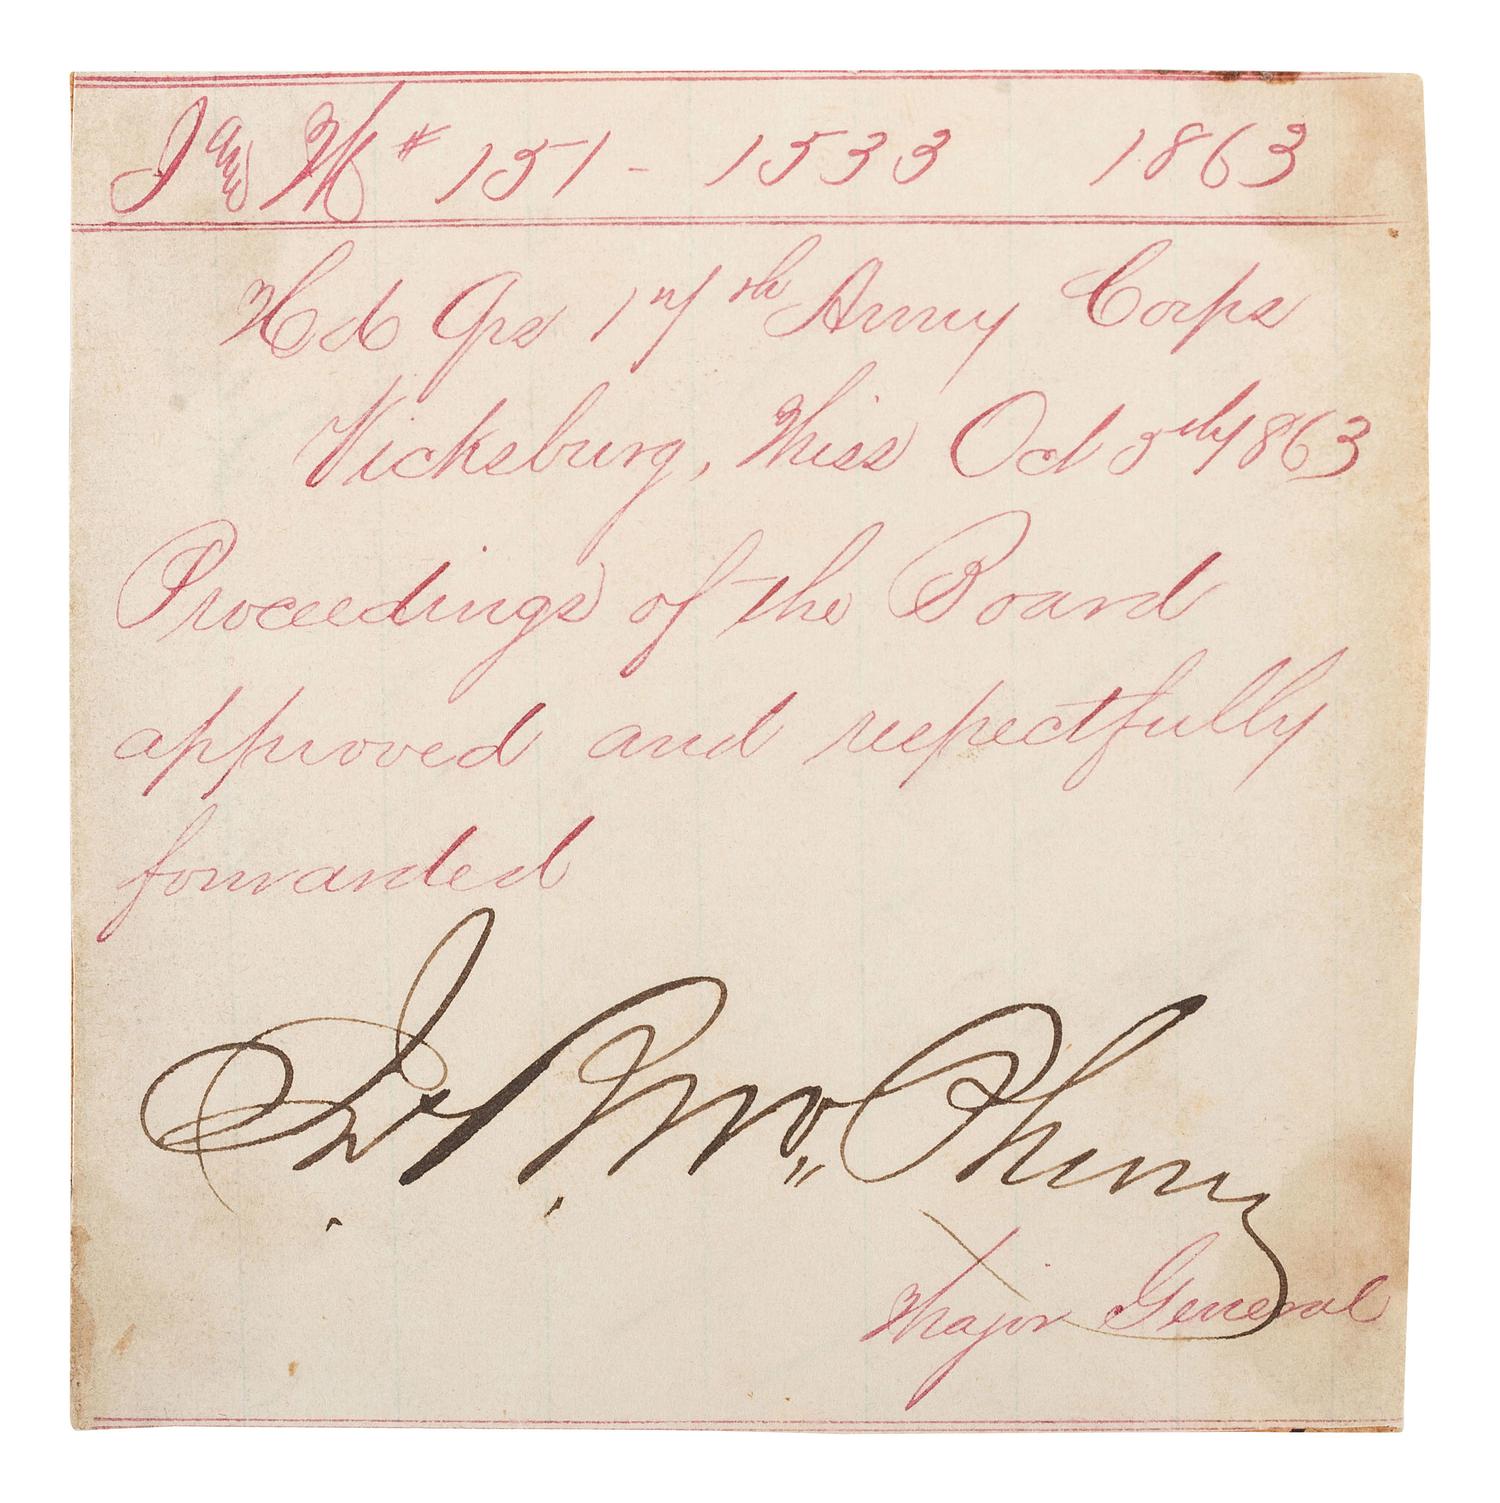 # 151 - 1533 1863
Hd Qrs 17th Army Corps
Vicksburg, Miss Oct 5th 1863
Proceedings of the Board
approved and respectfully
forwarded
Jas. B. McPherson
Major General